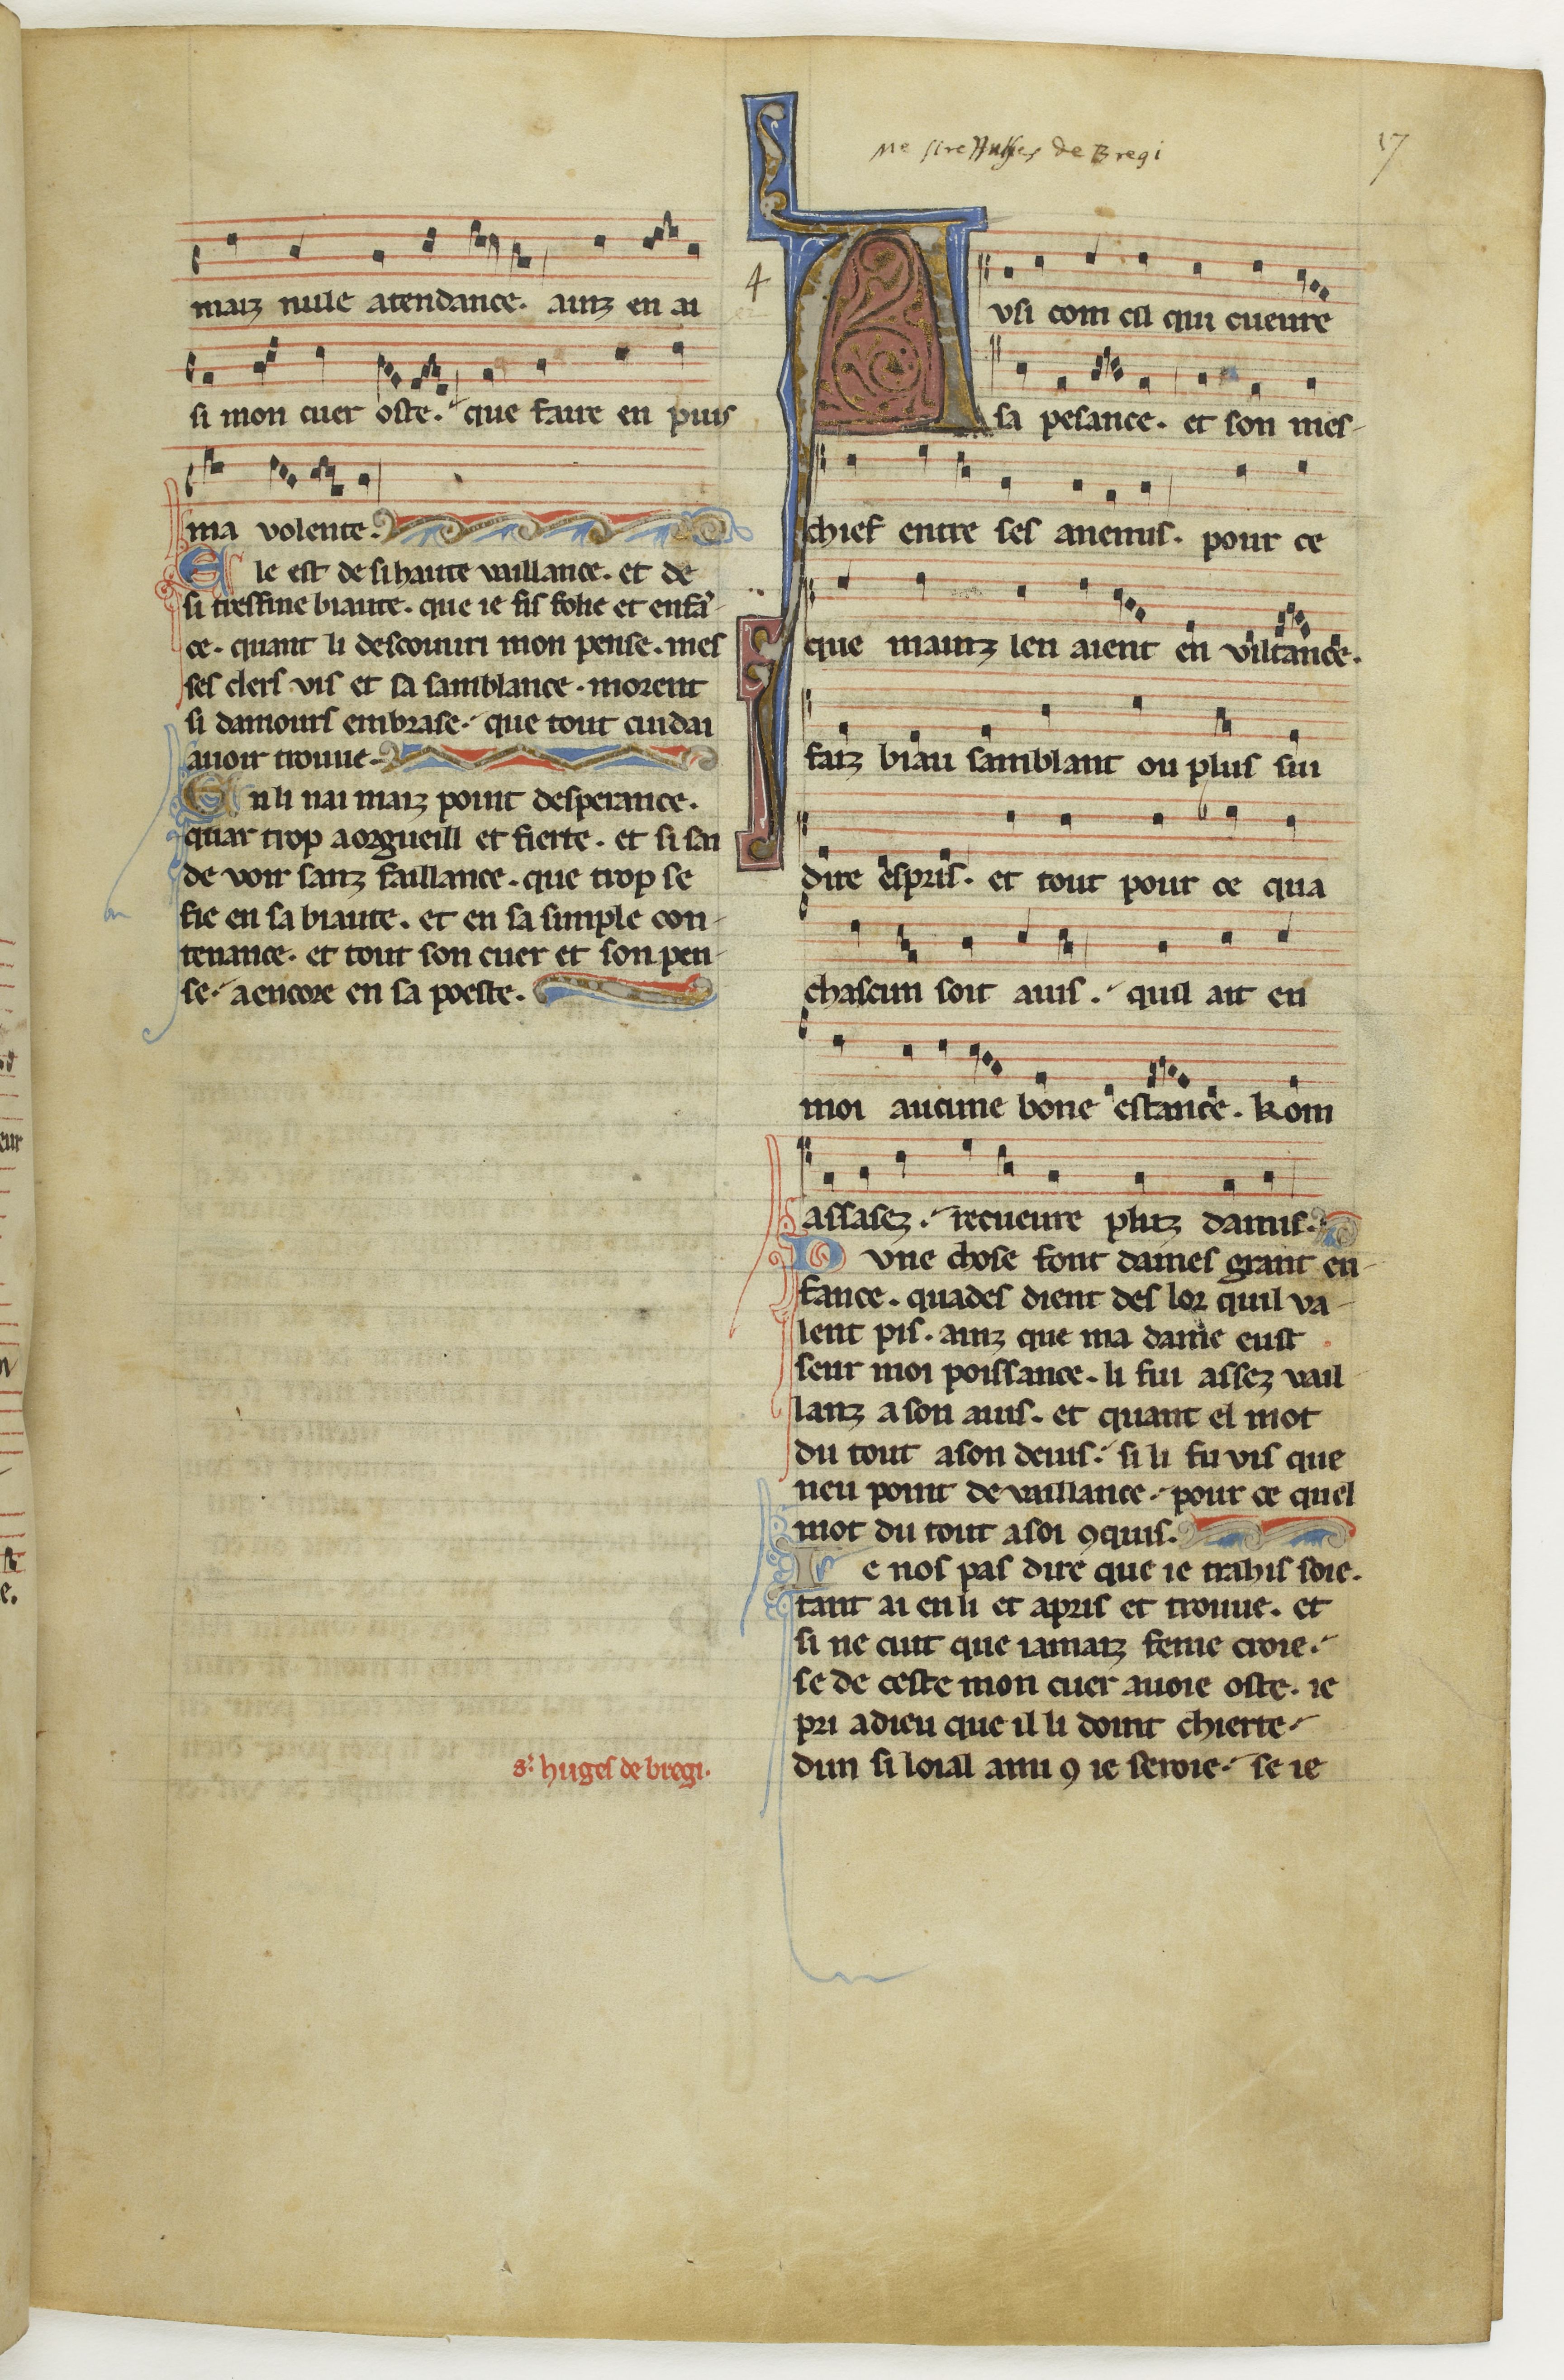 me sire Hughes de Bregi
17
maiz nule atendance. ainz en ai
si mon cuer oste. que faire en puis
ma volente.
Ele est de si haute vaillance. et de
si tresfine biaute. que ie fis folie et enfā-
ce. quant li descouuri mon pense. mes
ses clers vis et sa samblance. morent
si damours embrase. que tout cuidai
auoir trouue.
En li nai maiz point desperance.
quar trop a orgueill et fierte. et si sai
de voir sanz faillance. que trop se
fie en sa biaute. et en sa simple con-
tenance. et tout son cuer et son pen-
se. a encore en sa poeste.
s' huges de bregi.
4
Ausi com cil qui cueure
sa pesance. et son mes-
chief entre ses anemis. pour ce
que mainz len aient en viltance.
faiz biau samblant ou plus sui
dire espris. et tout pour ce qua
chascun soit auis. quil ait en
moi aucune bone estance. kom
assasez. recueure pluz damis.
Dvne chose font dames grant en-
fance. quades dient des lor quil va-
lent pis. ainz que ma dame eust
seur moi poissance. li fui assez vail
lanz a son auis. et quant el mot
du tout a son deuis. si li fu vis que
neu point de vaillance. pour ce quel
mot du tout a soi ꝯquis.
Ie nos pas dire que ie trahis soie.
tant ai en li et apris et trouue. et
si ne cuit que iamaiz feme croie.
se de ceste mon cuer auoie oste. ie
pri a dieu que il li doint chierte.
dun si loial ami ꝯ ie seroie. se ie